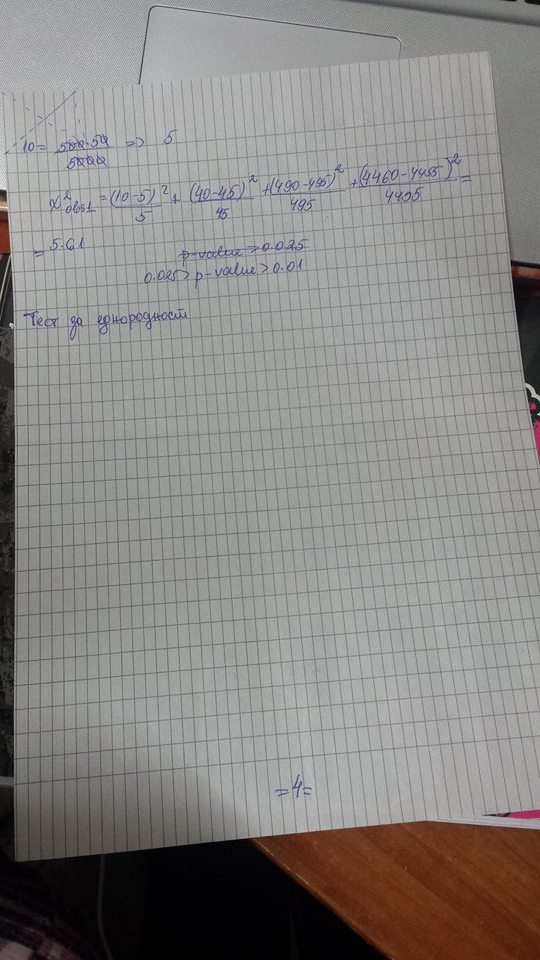 10 = 500·50 / 5000 => 5
χ²obs1 = (10-5)²/5 + (40-45)²/45 + (490-495)²/495 + (4460-4455)²/4455 =
= 5.61
p-value > 0.025
0.025 > p-value > 0.01
Тест за еднородност
=4=